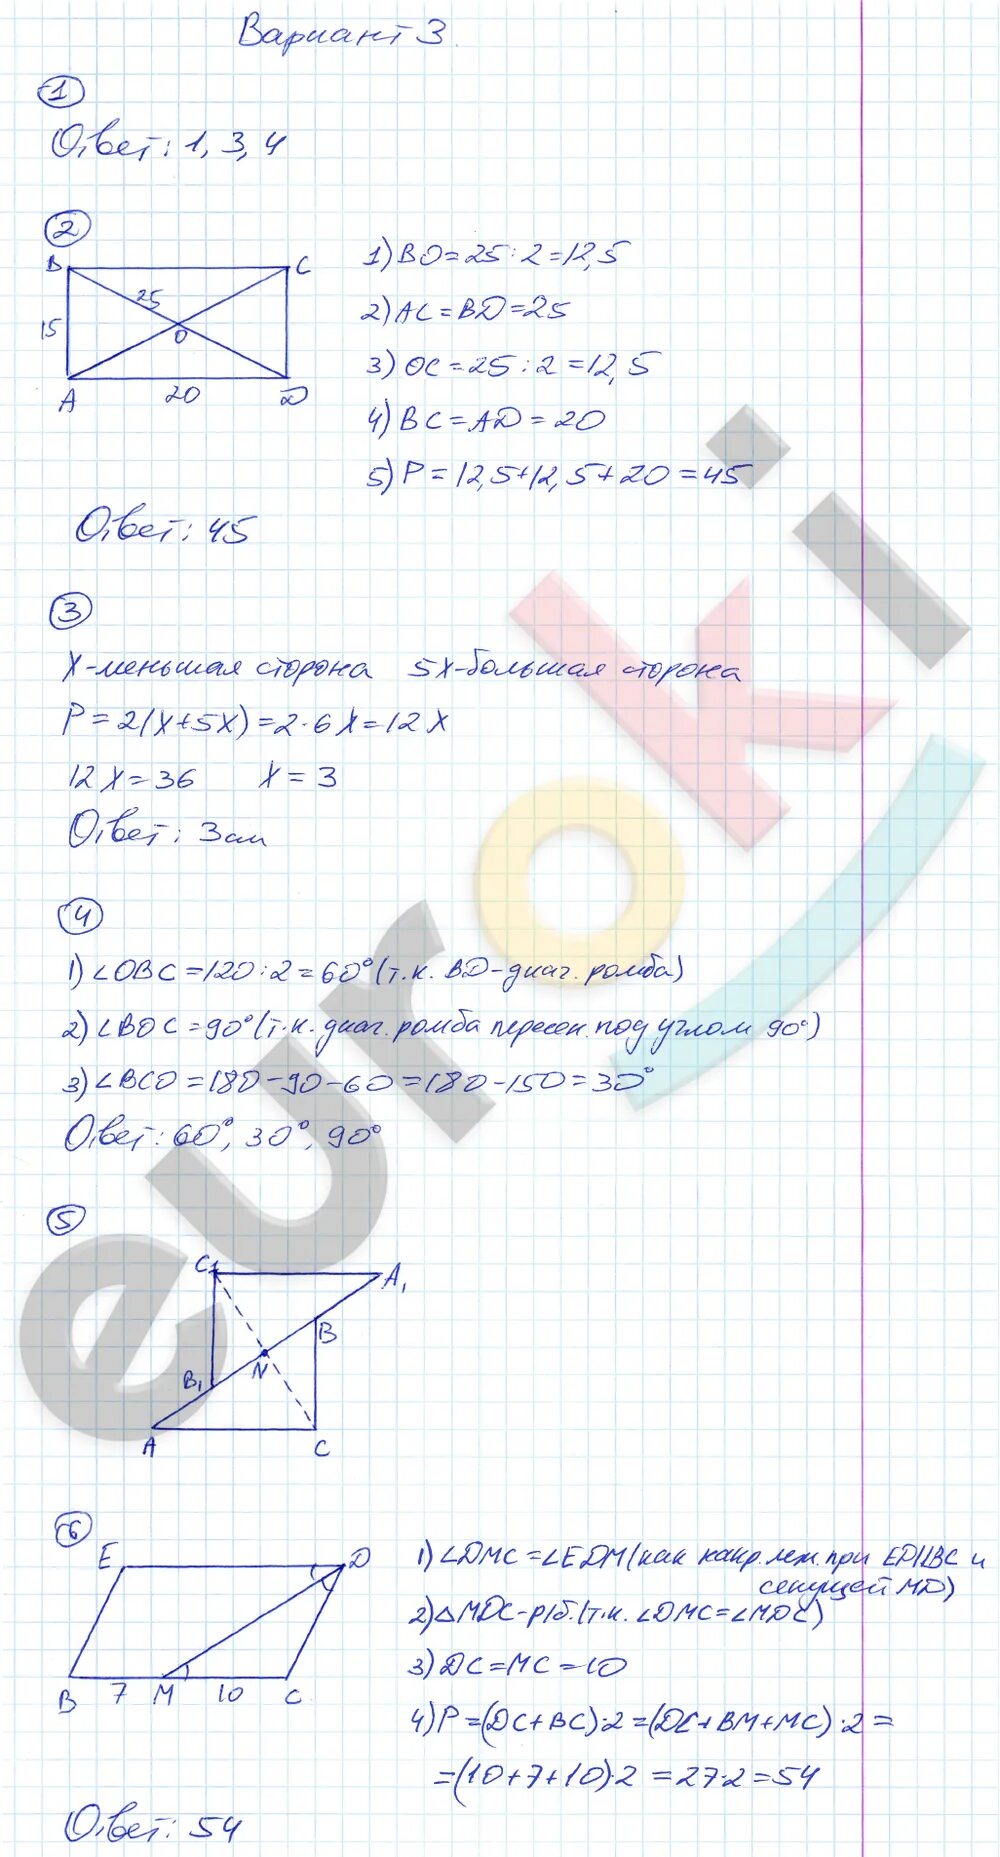 Вариант 3.
1
Ответ: 1, 3, 4
2
B
C
25
15
O
A
20
D
1) BO = 25 : 2 = 12,5
2) AC = BD = 25
3) OC = 25 : 2 = 12,5
4) BC = AD = 20
5) P = 12,5 + 12,5 + 20 = 45
Ответ: 45
3
X - меньшая сторона 5X - большая сторона
P = 2(X + 5X) = 2 · 6X = 12X
12X = 36 X = 3
Ответ: 3см
4
1) ∠OBC = 120 : 2 = 60° (т.к. BD - диаг. ромба)
2) ∠BOC = 90° (т.к. диаг. ромба пересек. под углом 90°)
3) ∠BCO = 180 - 90 - 60 = 180 - 150 = 30°
Ответ: 60°, 30°, 90°
5
C₁
A₁
B
N
B₁
A
C
6
E
D
B
7
M
10
C
1) ∠DMC = ∠EDM (как накр. леж. при ED||BC и
секущей MD)
2) △MDC - р/б. (т.к. ∠DMC = ∠MDC)
3) DC = MC = 10
4) P = (DC + BC) · 2 = (DC + BM + MC) · 2 =
= (10 + 7 + 10) · 2 = 27 · 2 = 54
Ответ: 54
euroki